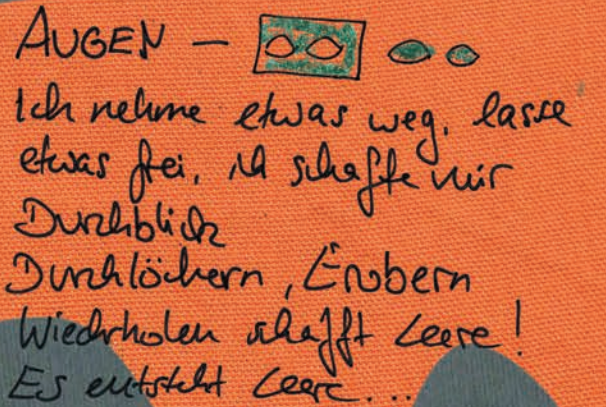 AUGEN –
Ich nehme etwas weg, lasse
etwas frei, ich schaffe mir
Durchblick
Durchlöchern, Erobern
Wiederholen schafft Leere!
Es entsteht Leere...